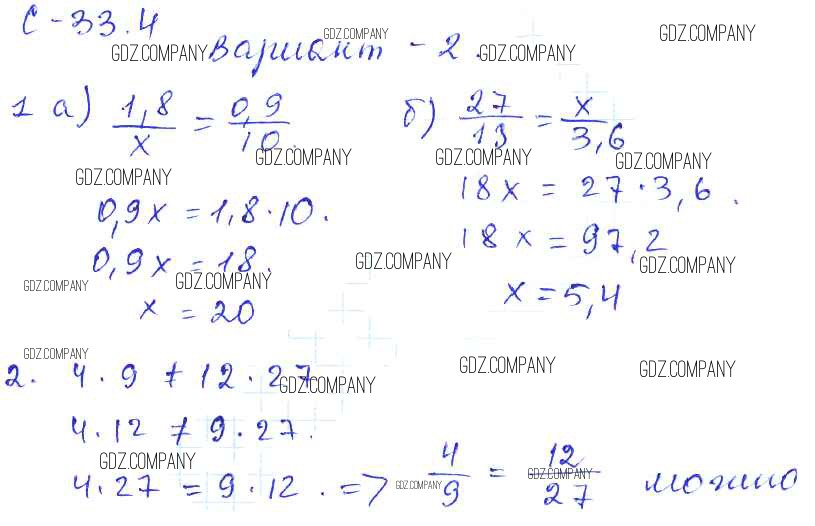 С-33.4
GDZ.COMPANY GDZ.COMPANY
GDZ.COMPANY вариант - 2. GDZ.COMPANY
1 а) 1,8/x = 0,9/10 б) 27/13 = x/3,6
GDZ.COMPANY GDZ.COMPANY GDZ.COMPANY
GDZ.COMPANY
0,9x = 1,8·10. 18x = 27·3,6.
0,9x = 18. 18x = 97,2
GDZ.COMPANY GDZ.COMPANY
GDZ.COMPANY GDZ.COMPANY
x = 20 x = 5,4
GDZ.COMPANY GDZ.COMPANY GDZ.COMPANY
2. 4·9 ≠ 12·27
GDZ.COMPANY
4·12 ≠ 9·27.
GDZ.COMPANY
4·27 = 9·12. => 4/9 = 12/27 можно
GDZ.COMPANY GDZ.COMPANY